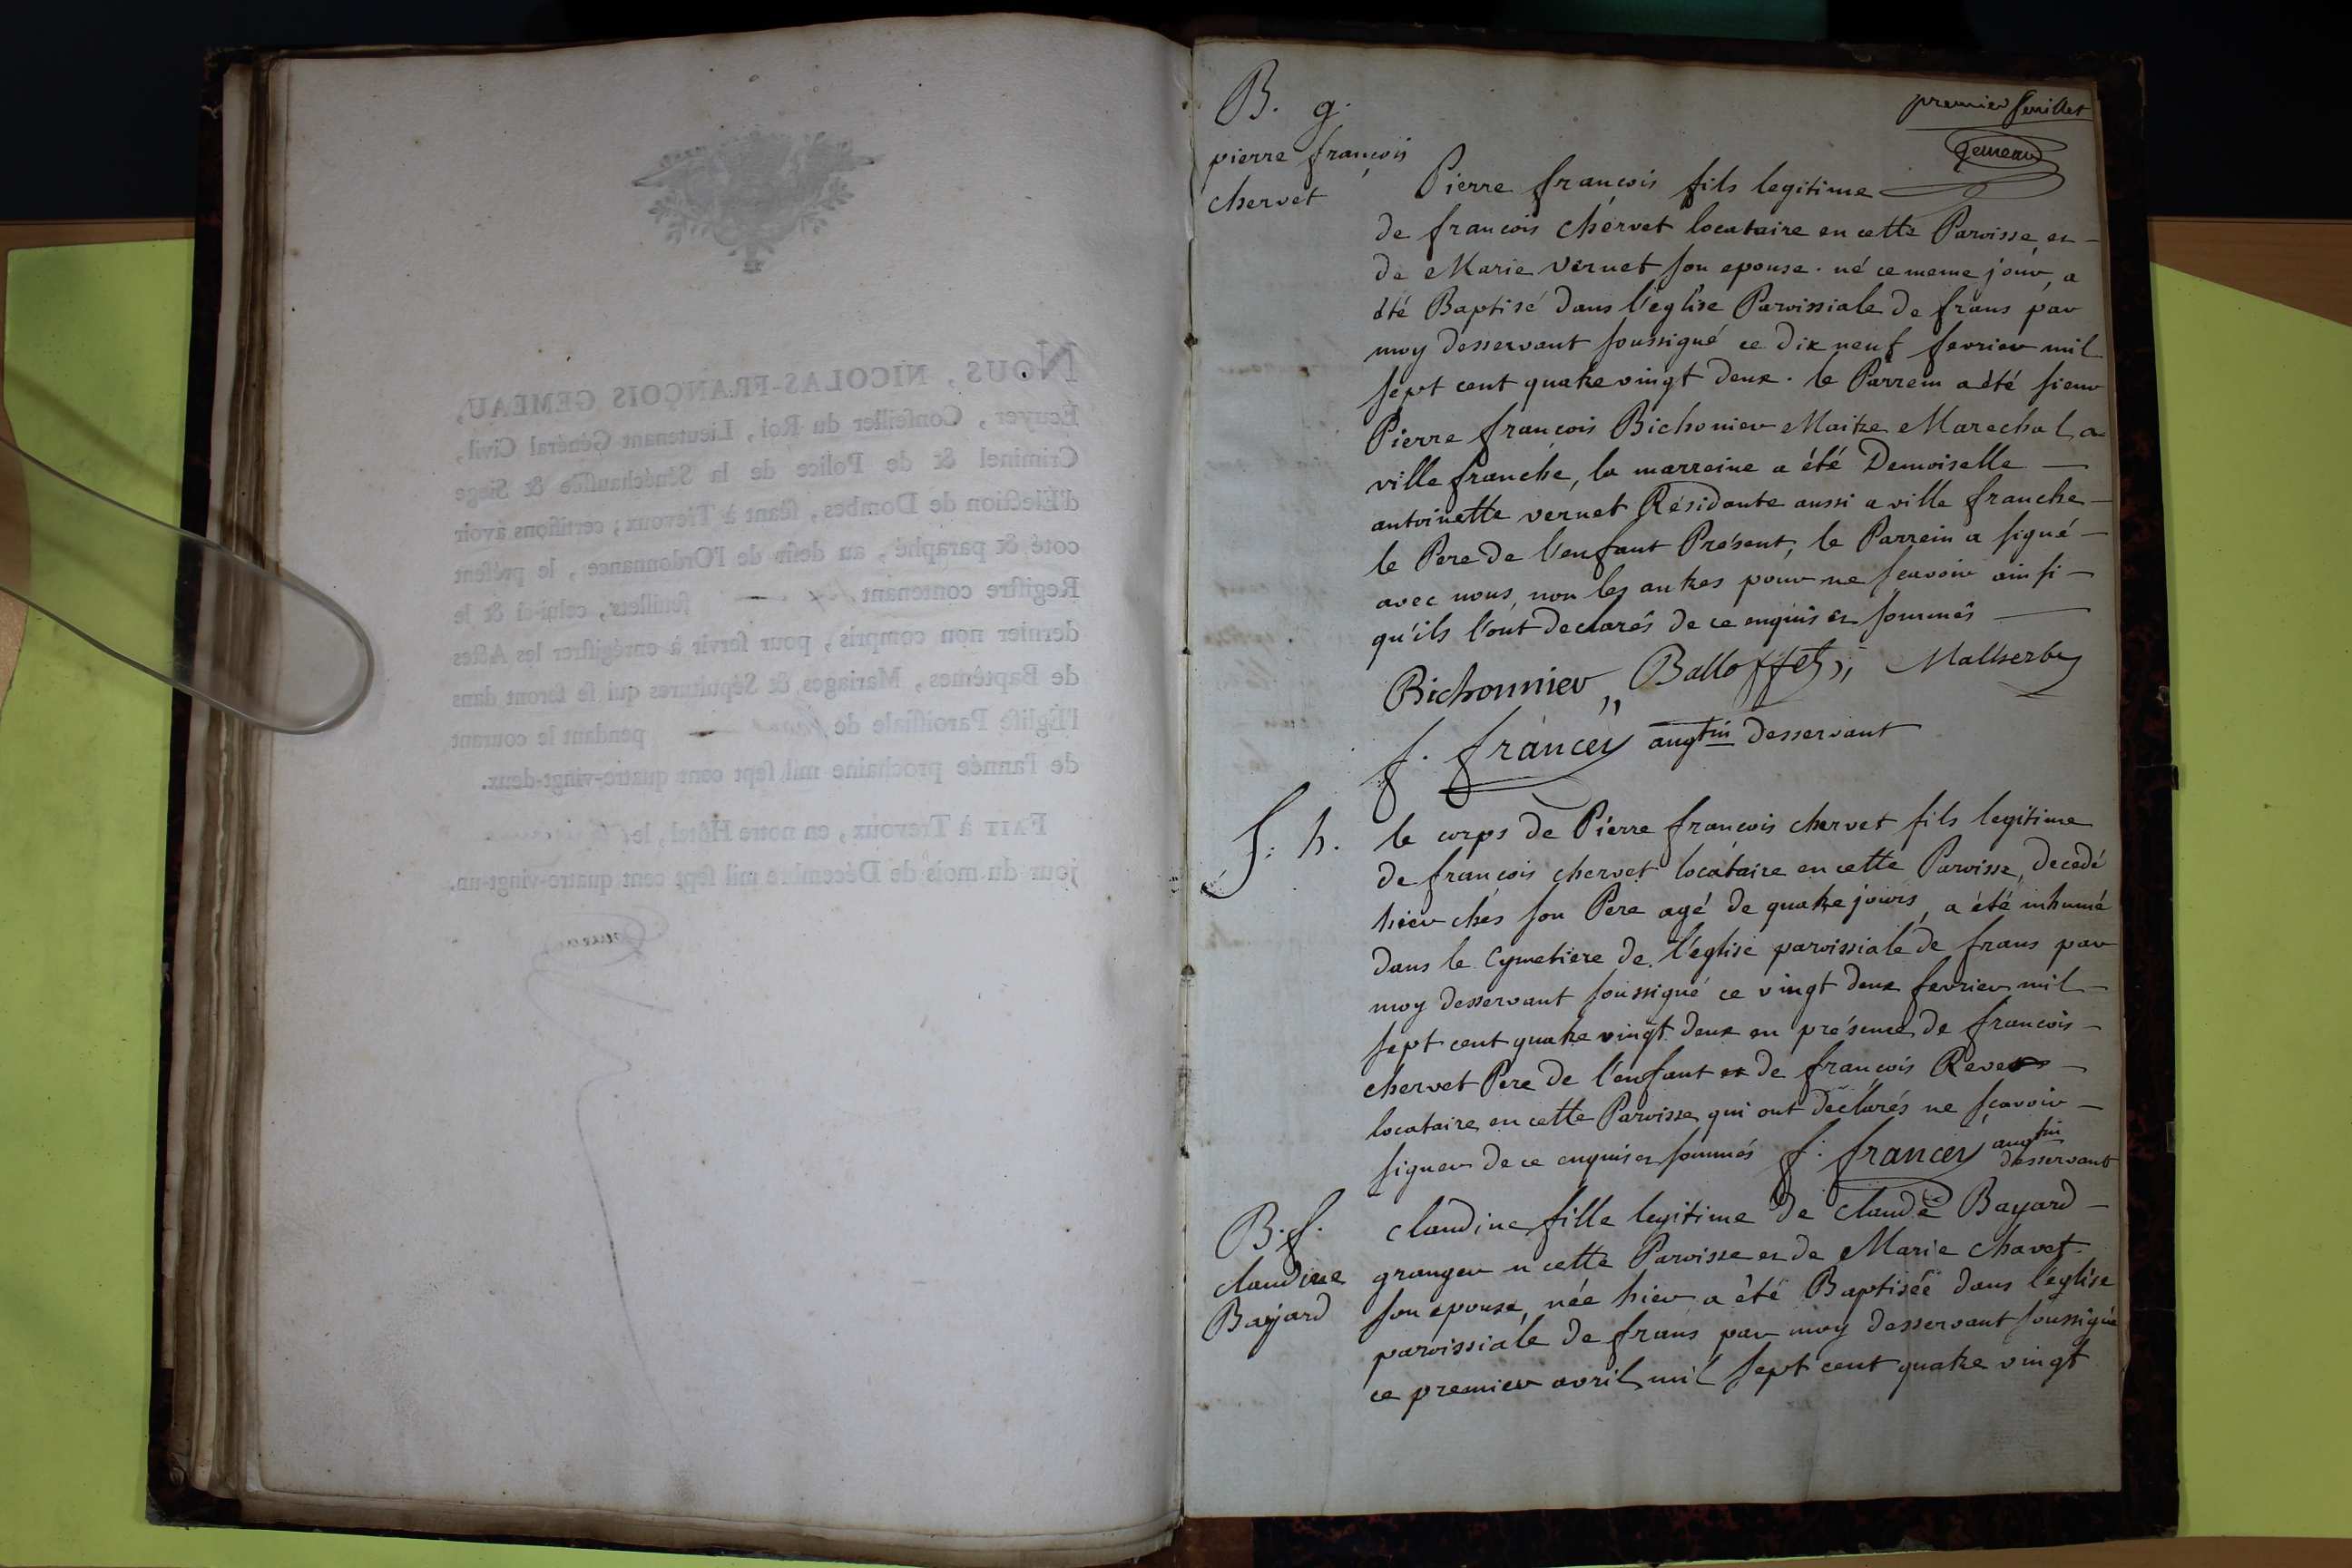 NOUS, NICOLAS-FRANÇOIS GEMEAU,
Écuyer, Conseiller du Roi, Lieutenant Général Civil,
Criminel & de Police de la Sénéchaussée & Siege
d'Élection de Dombes, séant à Trévoux; certifions avoir
coté & paraphé, au desir de l'Ordonnance, le présent
Registre contenant feuillets, celui-ci & le
dernier non compris, pour servir à enrégistrer les Actes
de Baptêmes, Mariages & Sépultures qui se feront dans
l'Église Paroissiale de pendant le courant
de l'année prochaine mil sept cent quatre-vingt-deux.
FAIT à Trevoux, en notre Hôtel, le
jour du mois de Décembre mil sept cent quatre-vingt-un.
premier feuillet
Gemeau
B. g.
pierre françois
chervet
Pierre françois fils legitime
de francois chervet locataire en cette Paroisse, et
de Marie vernet son epouse. né ce meme jour, a
été Baptisé dans l'eglise Paroissiale de frans par
moy desservant soussigné ce dix neuf fevrier mil
sept cent quatre vingt deux. le Parrein a été sieur
Pierre françois Bichonier Maitre Marechal a
ville franche, la marreine a été Demoiselle
antoinette vernet Résidante aussi a ville franche
le Pere de l'enfant Présent, le Parrein a signé
avec nous, non les autres pour ne scavoir ainsi
qu'ils l'ont declarés de ce enquis et sommés
Bichonnier,, Balloffet,; Malherbe
f. francey augtin desservant
S. h.
le corps de Pierre francois chervet fils legitime
de francois chervet locataire en cette Paroisse, decedé
hier chés son Pere agé de quatre jours, a été inhumé
dans le Cymetiere de l'eglise paroissiale de frans par
moy desservant soussigné ce vingt deux fevrier mil
sept cent quatre vingt deux en présence de francois
chervet Pere de l'enfant et de francois
locataire en cette Paroisse qui ont declarés ne scavoir
signer de ce enquis et sommés f. francey augtin
desservant
B. f.
claudine
Bayard
claudine fille legitime de claude Bayard
granger en cette Paroisse et de Marie chavet
son epouse, née hier a été Baptisée dans l'eglise
paroissiale de frans par moy desservant soussigné
ce premier avril mil sept cent quatre vingt